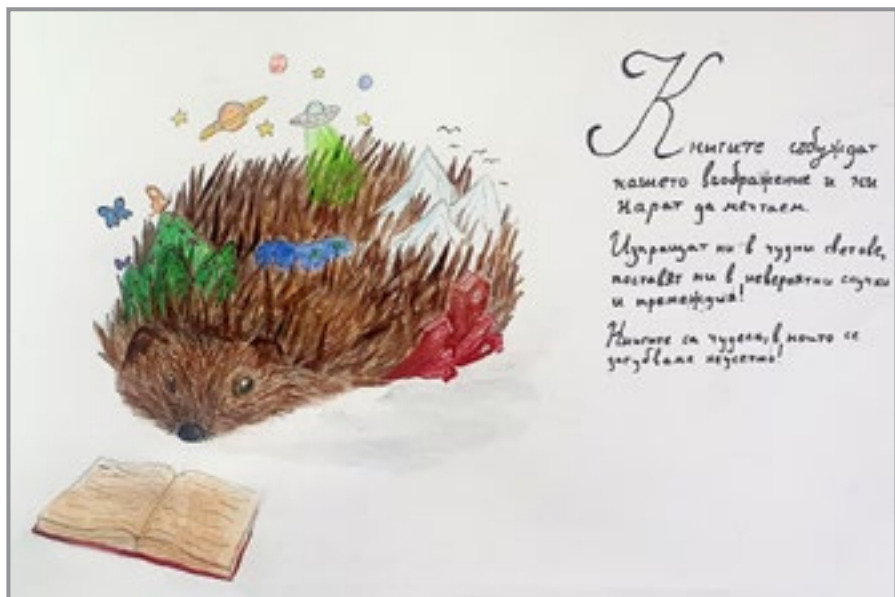 Книгите събуждат
нашето въображение и ни
карат да мечтаем.
Изпращат ни в чудни светове,
поставят ни в невероятни случки
и премеждия!
Книгите са чудеса, в които се
загубваме неусетно!